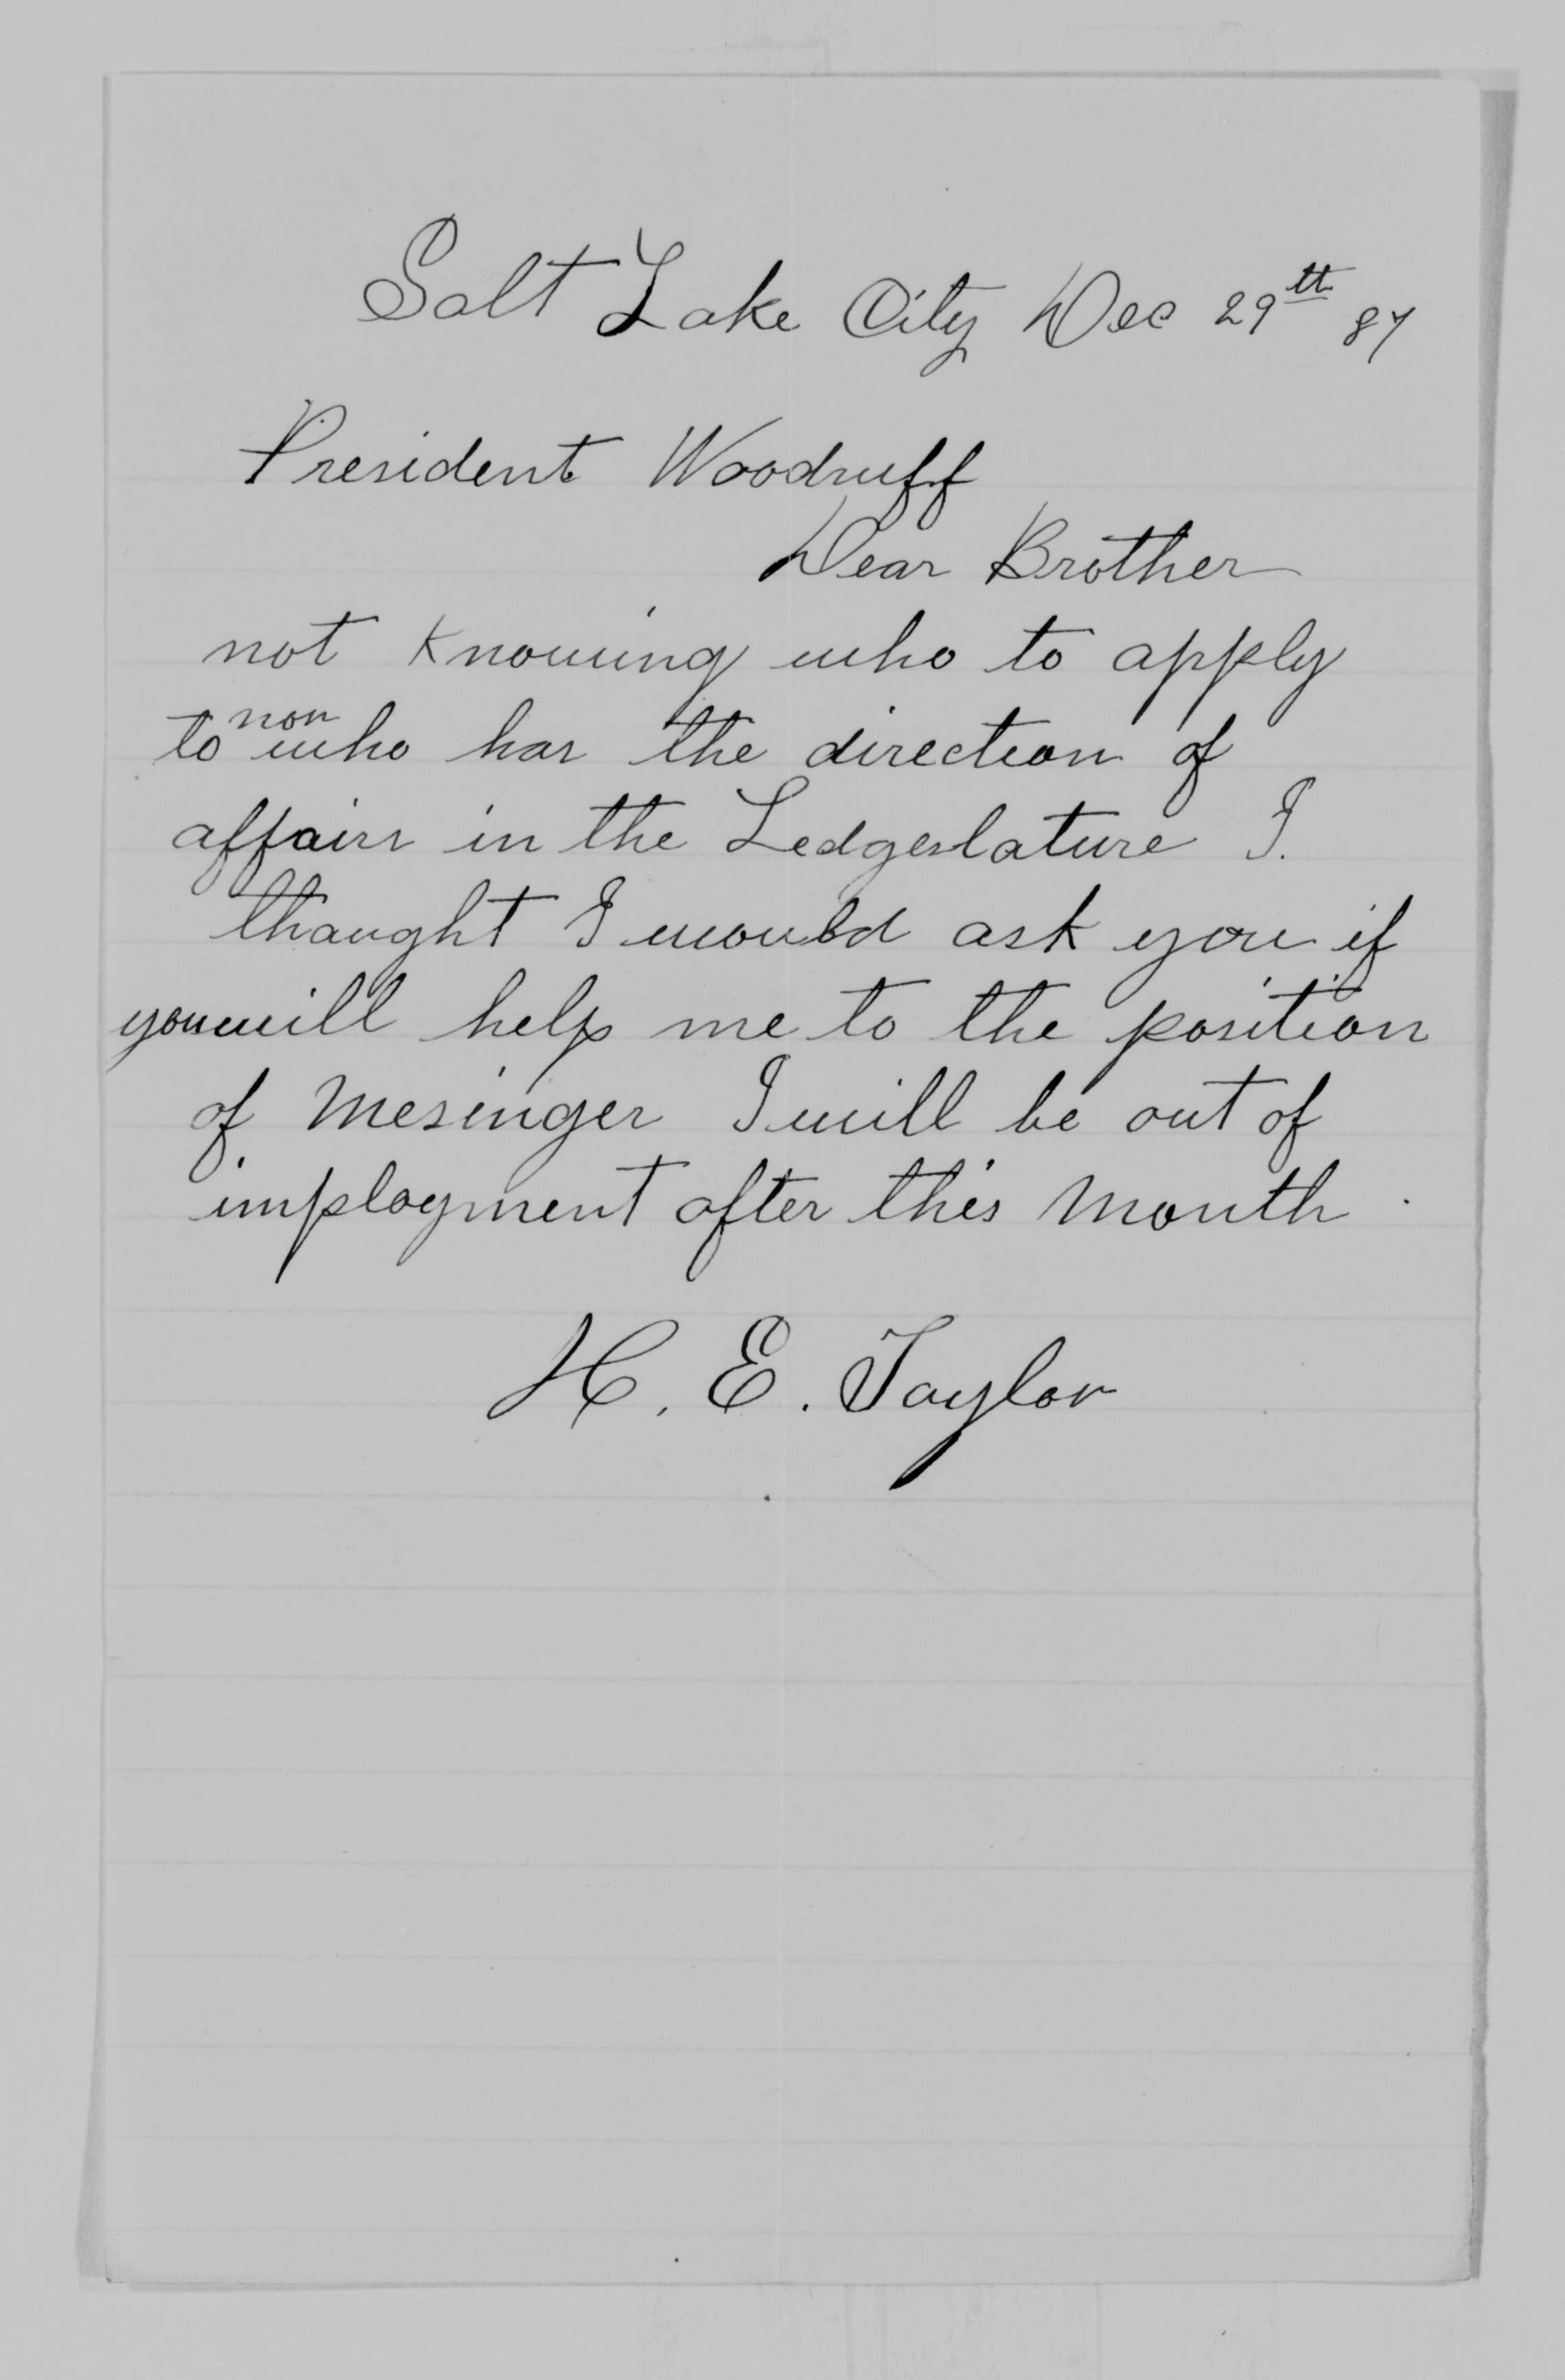 Salt Lake City Dec 29th 87
President Woodruff
Dear Brother
not Knowing who to apply
to nor who has the direction of
affairs in the Ledgeslature I.
thought I would ask you if
you will help me to the position
of Mesinger I will be out of
imployment after this Month
H. E. Taylor